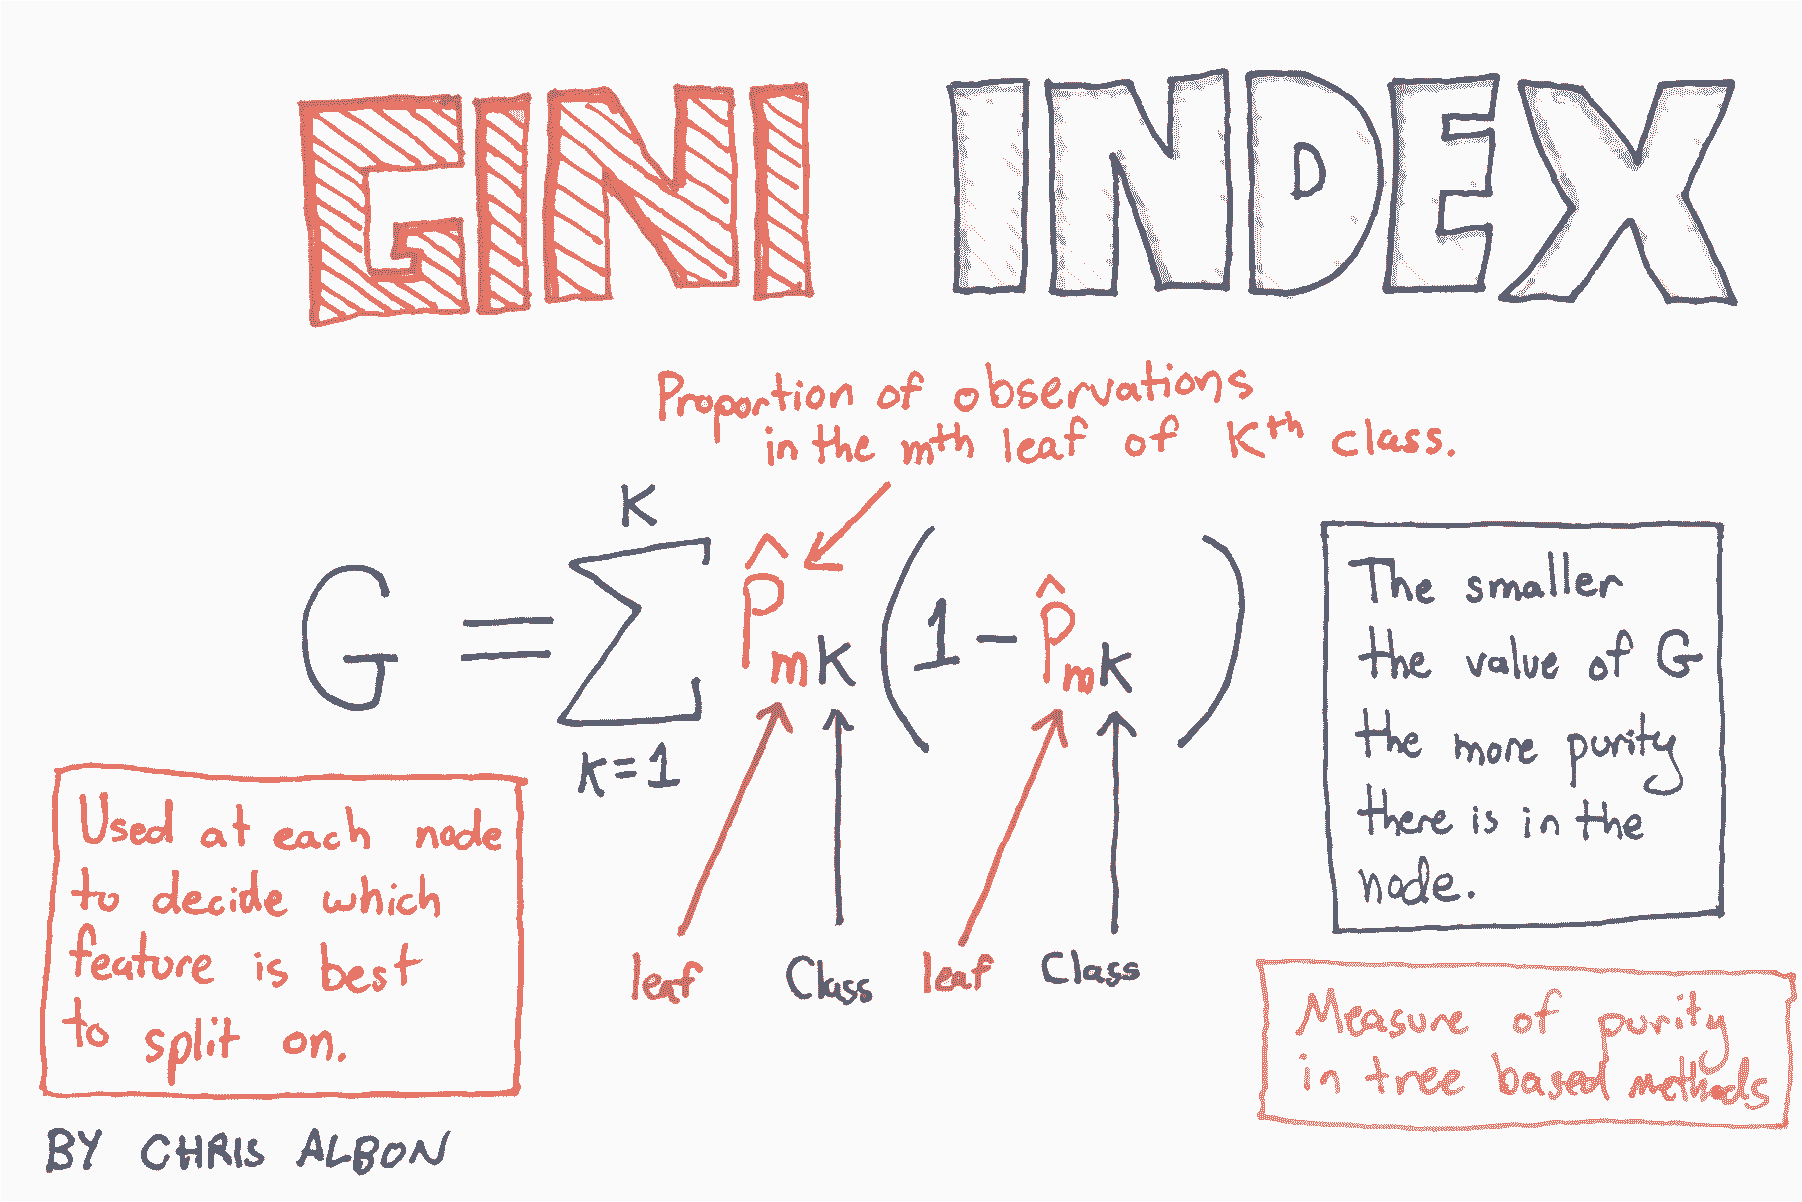 GINI INDEX
Proportion of observations
in the mth leaf of Kth class.
G = K∑k=1 p̂mk (1 - p̂mk)
The smaller
the value of G
the more purity
there is in the
node.
Used at each node
to decide which
feature is best
to split on.
leaf Class leaf Class
Measure of purity
in tree based methods
BY CHRIS ALBON